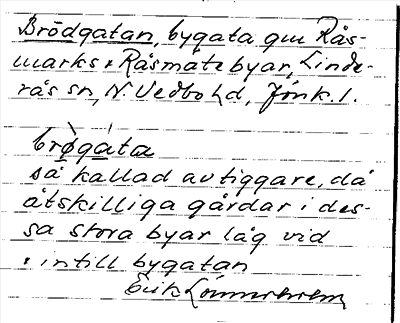 Brödgatan, bygata gm Rås-
marks o Råsmåte byar, Linde-
rås sn, N. Vedbo hd, Jönk. l.
brø̀gáta
så kallad av tiggare, då
åtskilliga gårdar i des-
sa stora byar låg vid
o intill bygatan
Erik